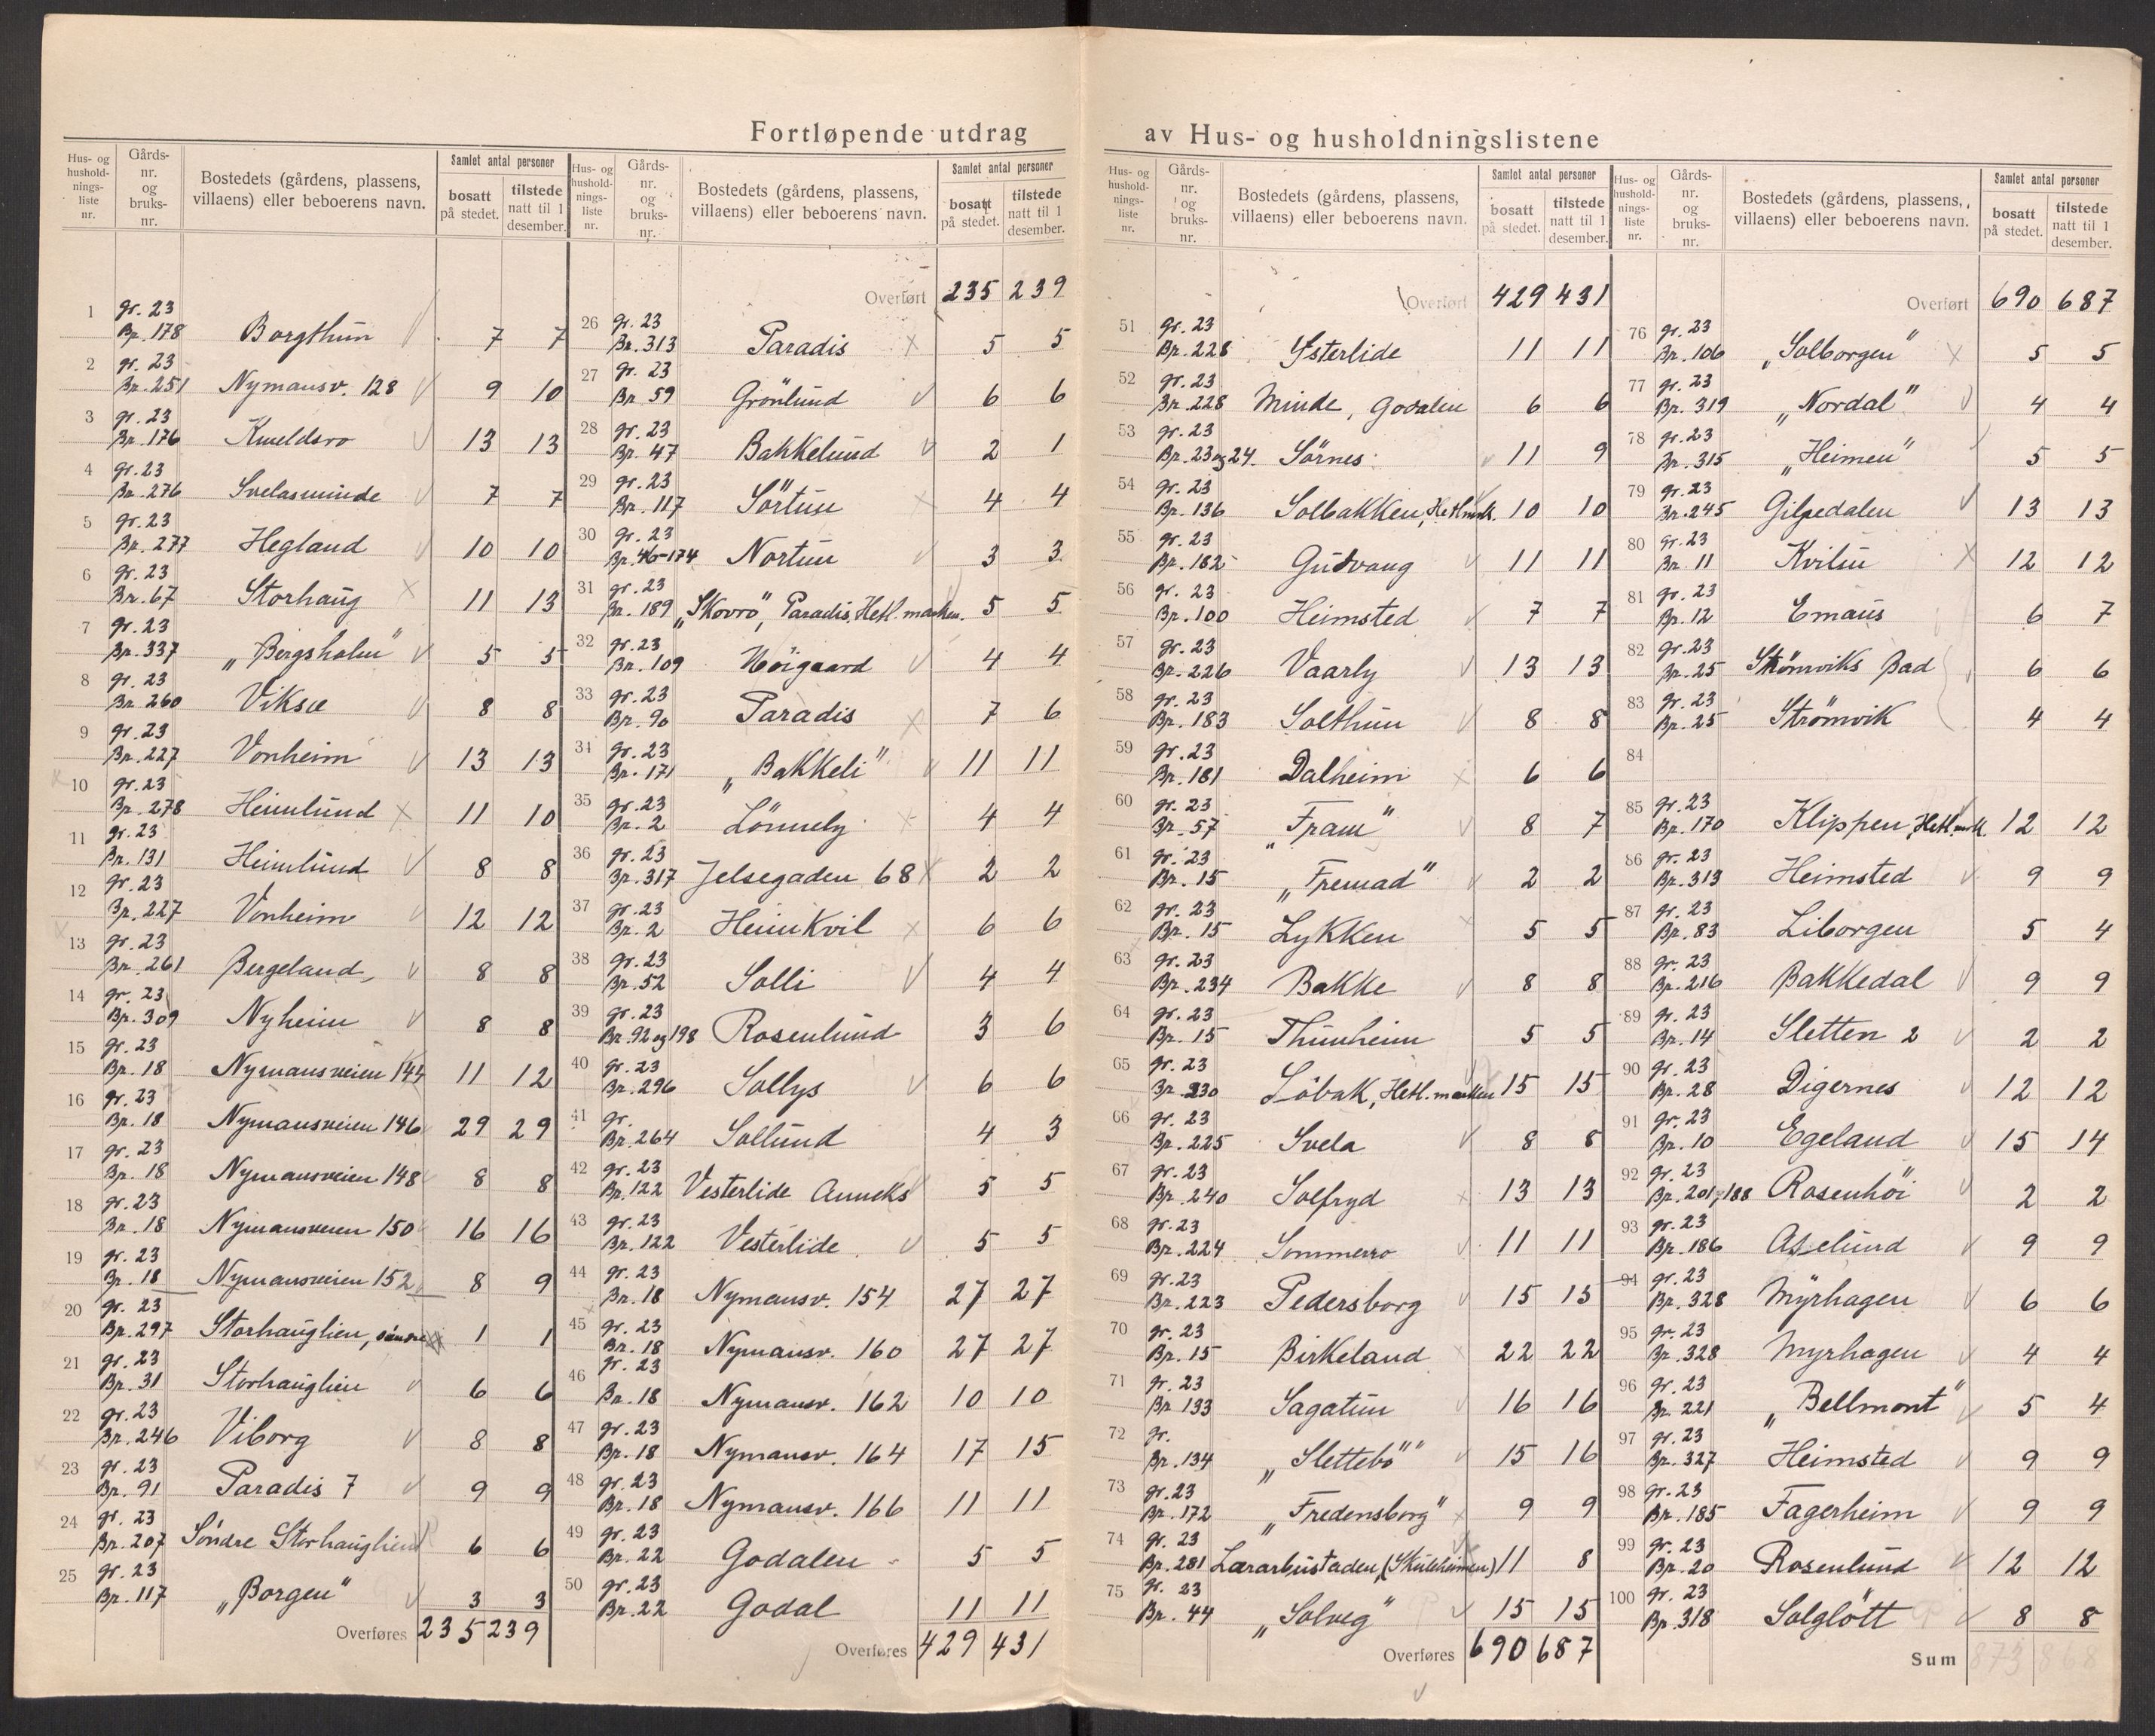 Fortløpende utdrag av Hus- og husholdningslistene
Hus- og hushold-nings-liste nr. Gårds-nr. og bruks-nr. Bostedets (gårdens, plassens, villaens) eller beboerens navn. Samlet antal personer bosatt på stedet. tilstede natt til 1 desember.
1 Gr. 23 Br. 178 Borgthun 7 7
2 Gr. 23 Br. 251 Nymansv. 128 9 10
3 Gr. 23 Br. 176 Kveldsro 13 13
4 Gr. 23 Br. 276 Svelasminde 7 7
5 Gr. 23 Br. 277 Hegland 10 10
6 Gr. 23 Br. 67 Storhaug 11 13
7 Gr. 23 Br. 337 "Bergsholm" 5 5
8 Gr. 23 Br. 260 Viksæ 8 8
9 Gr. 23 Br. 227 Vonheim 13 13
10 Gr. 23 Br. 278 Heimlund 11 10
11 Gr. 23 Br. 131 Heimlund 8 8
12 Gr. 23 Br. 227 Vonheim 12 12
13 Gr. 23 Br. 261 Bergeland 8 8
14 Gr. 23 Br. 309 Nyheim 8 8
15 Gr. 23 Br. 18 Nymansveien 144 11 12
16 Gr. 23 Br. 18 Nymansveien 146 29 29
17 Gr. 23 Br. 18 Nymansveien 148 8 8
18 Gr. 23 Br. 18 Nymansveien 150 16 16
19 Gr. 23 Br. 18 Nymansveien 152 8 9
20 Gr. 23 Br. 297 Storhauglien, søndre 1 1
21 Gr. 23 Br. 31 Storhauglien 6 6
22 Gr. 23 Br. 246 Viborg 8 8
23 Gr. 23 Br. 91 Paradis 7 9 9
24 Gr. 23 Br. 207 Söndre Storhauglien 6 6
25 Gr. 23 Br. 117 "Borgen" 3 3
Overføres 235 239
Hus- og hushold-nings-liste nr. Gårds-nr. og bruks-nr. Bostedets (gårdens, plassens, villaens) eller beboerens navn. Samlet antal personer bosatt på stedet. tilstede natt til 1 desember.
Overført 235 239
26 Gr. 23 Br. 313 Paradis 5 5
27 Gr. 23 Br. 59 Grönlund 6 6
28 Gr. 23 Br. 47 Bakkelund 2 1
29 Gr. 23 Br. 117 Sörtun 4 4
30 Gr. 23 Br. 46-174 Nortun 3 3
31 Gr. 23 Br. 189 "Skovro", Paradis, Hetl. marken. 5 5
32 Gr. 23 Br. 109 Höigaard 4 4
33 Gr. 23 Br. 90 Paradis 7 6
34 Gr. 23 Br. 171 "Bakkeli" 11 11
35 Gr. 23 Br. 2 Lönnely 4 4
36 Gr. 23 Br. 317 Jelsegaden 68 2 2
37 Gr. 23 Br. 2 Heimkvil 6 6
38 Gr. 23 Br. 52 Solli 4 4
39 Gr. 23 Br. 92 og 198 Rosenlund 3 6
40 Gr. 23 Br. 296 Sollys 6 6
41 Gr. Br. 264 Sollund 4 3
42 Gr. 23 Br. 122 Vesterlide Anneks 5 5
43 Gr. 23 Br. 122 Vesterlide 5 5
44 Gr. 23 Br. 18 Nymansv. 154 27 27
45 Gr. 23 Br. 18 Nymansv. 160 27 27
46 Gr. 23 Br. 18 Nymansv. 162 10 10
47 Gr. 23 Br. 18 Nymansv. 164 17 15
48 Gr. 23 Br. 18 Nymansv. 166 11 11
49 Gr. 23 Br. 22 Godalen 5 5
50 Gr. 23 Br. 22 Godal 11 11
Overføres 429 431
Hus- og hushold-nings-liste nr. Gårds-nr. og bruks-nr. Bostedets (gårdens, plassens, villaens) eller beboerens navn. Samlet antal personer bosatt på stedet. tilstede natt til 1 desember.
Overført 429 431
51 Gr. 23 Br. 228 Ysterlide 11 11
52 Gr. 23 Br. 228 Minde, Godalen 6 6
53 Gr. 23 Br. 23 og 24. Sörnes 11 9
54 Gr. 23 Br. 136 Solbakken, Hetl.mrk. 10 10
55 Gr. 23 Br. 182 Gudvang 11 11
56 Gr. 23 Br. 100 Heimsted 7 7
57 Gr. 23 Br. 226 Vaarly 13 13
58 Gr. 23 Br. 183 Solthun 8 8
59 Gr. 23 Br. 181 Dalheim 6 6
60 Gr. 23 Br. 57 "Fram" 8 7
61 Gr. 23 Br. 15 "Fremad" 2 2
62 Gr. 23 Br. 15 Lykken 5 5
63 Gr. 23 Br. 234 Bakke 8 8
64 Gr. 23 Br. 15 Thunheim 5 5
65 Gr. 23 Br. 230 Löbak, Hetl. marken 15 15
66 Gr. 23 Br. 225 Svela 8 8
67 Gr. 23 Br. 240 Solfryd 13 13
68 Gr. 23 Br. 224 Sommerro 11 11
69 Gr. 23 Br. 223 Pedersborg 15 15
70 Gr. 23 Br. 15 Birkeland 22 22
71 Gr. 23 Br. 133 Sagatun 16 16
72 Gr. Br. 134 "Slettebö" 15 16
73 Gr. 23 Br. 172 "Fredensborg" 9 9
74 Gr. 23 Br. 281 Lærarbustaden, (Skuleheimen) 11 8
75 Gr. 23 Br. 44 "Solveg" 15 15
Overføres 690 687
Hus- og hushold-nings-liste nr. Gårds-nr. og bruks-nr. Bostedets (gårdens, plassens, villaens) eller beboerens navn. Samlet antal personer bosatt på stedet. tilstede natt til 1 desember.
Overført 690 687
76 Gr. 23 Br. 106 "Solborgen" 5 5
77 Gr. 23 Br. 319 "Nordal" 4 4
78 Gr. 23 Br. 315 "Heimen" 5 5
79 Gr. 23 Br. 245 Gilpedalen 13 13
80 Gr. 23 Br. 11 Kvilin 12 12
81 Gr. 23 Br. 12 Emaus 6 7
82 Gr. 23 Br. 25 Strömviks Bad 6 6
83 Gr. 23 Br. 25 Strömvik 4 4
84
85 Gr. 23 Br. 170 Klippen, Hetl.mrk. 12 12
86 Gr. 23 Br. 313 Heimsted 9 9
87 Gr. 23 Br. 83 Liborgen 5 4
88 Gr. 23 Br. 216 Bakkedal 9 9
89 Gr. 23 Br. 14 Sletten 2 2 2
90 Gr. 23 Br. 28 Digernes 12 12
91 Gr. 23 Br. 10 Egeland 15 14
92 Gr. 23 Br. 201, 188 Rosenhöi 2 2
93 Gr. 23 Br. 186 Aselund 9 9
94 Gr. 23 Br. 328 Myrhagen 6 6
95 Gr. 23 Br. 328 Myrhagen 4 4
96 Gr. 23 Br. 221 "Bellmont" 5 4
97 Gr. 23 Br. 327 Heimsted 9 9
98 Gr. 23 Br. 185 Fagerheim 9 9
99 Gr. 23 Br. 20 Rosenlund 12 12
100 Gr. 23 Br. 318 Solglött 8 8
Sum 873 868